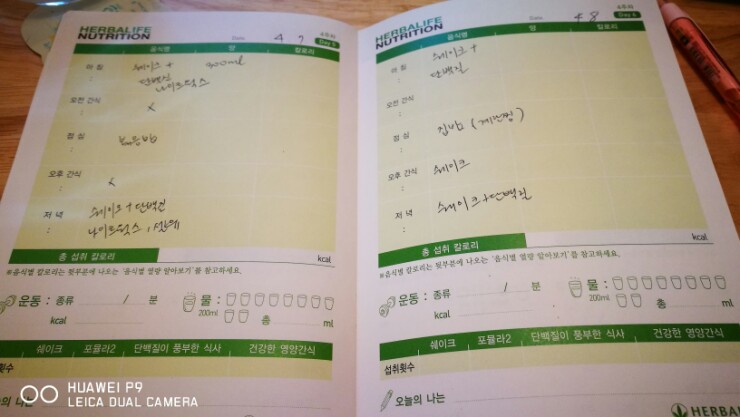 HERBALIFE
NUTRITION
Date 4 7
6주차
Day 5
음식명 양 칼로리
아침 쉐이크 + 400ml
단백질
나이트웍스
오전 간식 x
점심 볶음밥
오후 간식 x
저녁 쉐이크 + 단백질
나이트웍스
총 섭취 칼로리 kcal
※음식별 칼로리는 뒷부분에 나오는 '음식별 열량 알아보기'를 참고하세요.
운동 : 종류 / 분 물 :
200ml
kcal 총 ml
쉐이크 포뮬라2 단백질이 풍부한 식사 건강한 영양간식
섭취횟수
HERBALIFE
NUTRITION
Date 4 8
6주차
Day 6
음식명 양 칼로리
아침 쉐이크 +
단백질
오전 간식
점심 집밥
오후 간식 쉐이크
저녁 쉐이크+단백질
총 섭취 칼로리 kcal
※음식별 칼로리는 뒷부분에 나오는 '음식별 열량 알아보기'를 참고하세요.
운동 : 종류 / 분 물 :
200ml
kcal 총 ml
쉐이크 포뮬라2 단백질이 풍부한 식사 건강한 영양간식
섭취횟수
오늘의 나는
HERBAL
HUAWEI P9
LEICA DUAL CAMERA